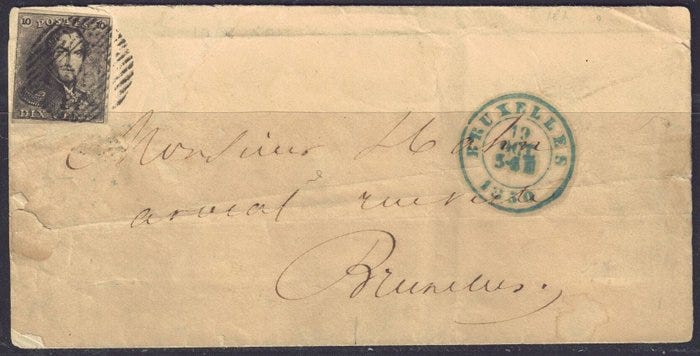 10 POSTES 10
DIX
BRUXELLES
19
5-6
1850
Monsieur Hahn
avocat rue
Bruxelles.